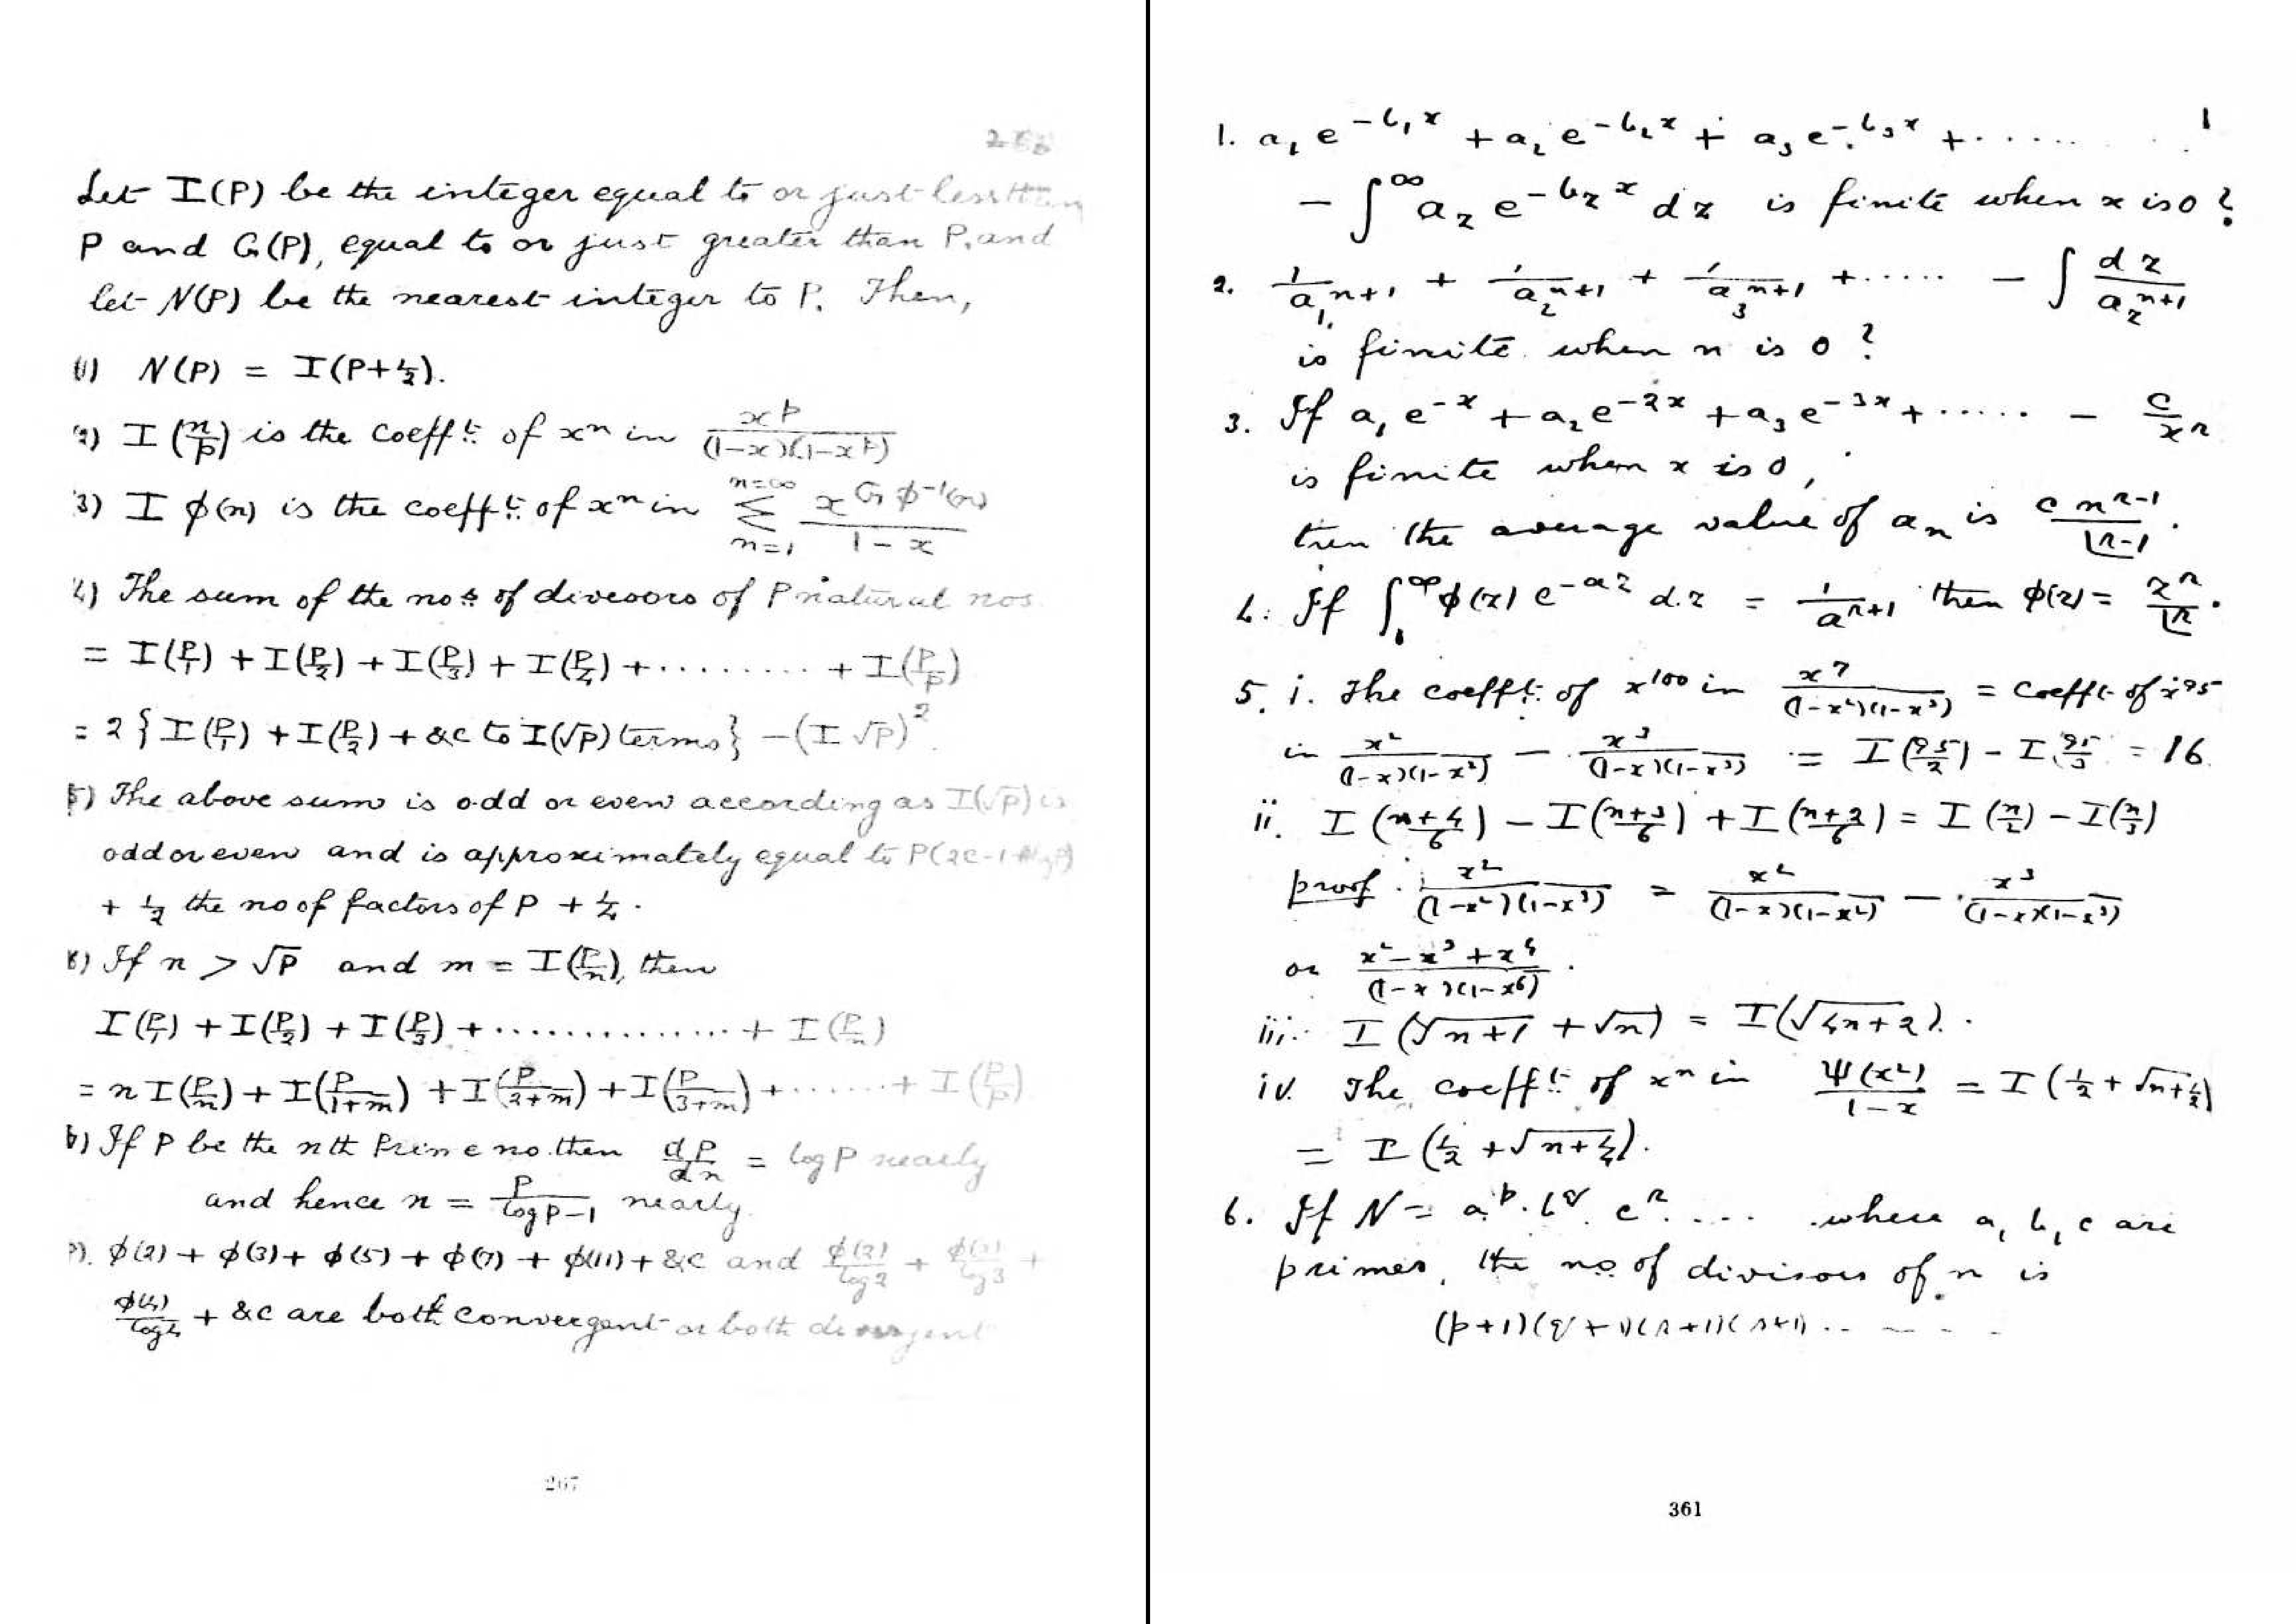 Let I(P) be the integer equal to or just less than
P and G(P), equal to or just greater than P, and
let N(P) be the nearest integer to P. Then,
1) N(P) = I(P+½).
2) I(n/p) is the coefft. of xⁿ in x^p/((1−x)(1−x^p))
3) I φ(n) is the coefft. of xⁿ in Σ_{n=1}^{n=∞} x^{G φ⁻¹(n)}/(1−x)
4) The sum of the nos of divisors of P natural nos.
= I(P/1) + I(P/2) + I(P/3) + I(P/4) + ......... + I(P/P)
= 2 {I(P/1) + I(P/2) + &c to I(√P) terms} − (I √P)².
5) The above sum is odd or even according as I(√P) is
odd or even and is approximately equal to P(2c−1+log P)
+ ½ the no of factors of P + ¼.
6) If n > √P and m = I(P/n), then
I(P/1) + I(P/2) + I(P/3) + .............. + I(P/n)
= n I(P/n) + I(P/(1+m)) + I(P/(2+m)) + I(P/(3+m)) + ...... + I(P/P)
If P be the nth Prime no. then dP/dn = log P nearly
and hence n = P/(log P−1) nearly.
φ(2) + φ(3) + φ(5) + φ(7) + φ(11) + &c and φ(2)/log 2 + φ(3)/log 3 +
φ(4)/log 4 + &c are both convergent or both divergent
267
1
1. a₁ e^{−b₁x} + a₂ e^{−b₂x} + a₃ e^{−b₃x} + ......
− ∫^∞ a_z e^{−b_z x} dz is finite when x is 0?
2. 1/a₁^{n+1} + 1/a₂^{n+1} + 1/a₃^{n+1} + ..... − ∫ dz/a_z^{n+1}
is finite when n is 0?
3. If a₁ e^{−x} + a₂ e^{−2x} + a₃ e^{−3x} + ..... − c/x^r
is finite when x is 0,
then the average value of aₙ is c n^{r−1}/|r−1.
4. If ∫₀^∞ φ(z) e^{−az} d.z = 1/a^{r+1} then φ(z) = z^r/|r.
5. i. The coefft. of x¹⁰⁰ in x⁷/((1−x²)(1−x³)) = Coefft. of x⁹⁵
in x²/((1−x)(1−x²)) − x³/((1−x)(1−x³)) = I(95/2) − I 95/3 = 16.
ii. I((n+4)/6) − I((n+3)/6) + I((n+2)/6) = I(n/2) − I(n/3)
proof. x²/((1−x²)(1−x³)) = x²/((1−x)(1−x²)) − x³/((1−x)(1−x³))
or (x²−x³+x⁴)/((1−x)(1−x⁶)).
iii. I(√(n+1) + √n) = I(√(4n+2)).
iv. The coefft. of xⁿ in Ψ(x²)/(1−x) = I(½ + √(n+½))
= I(½ + √(n+¼)).
6. If N = a^p. b^q. c^r. .... where a, b, c are
primes, the no. of divisors of n is
(p+1)(q+1)(r+1)(s+1)......
361